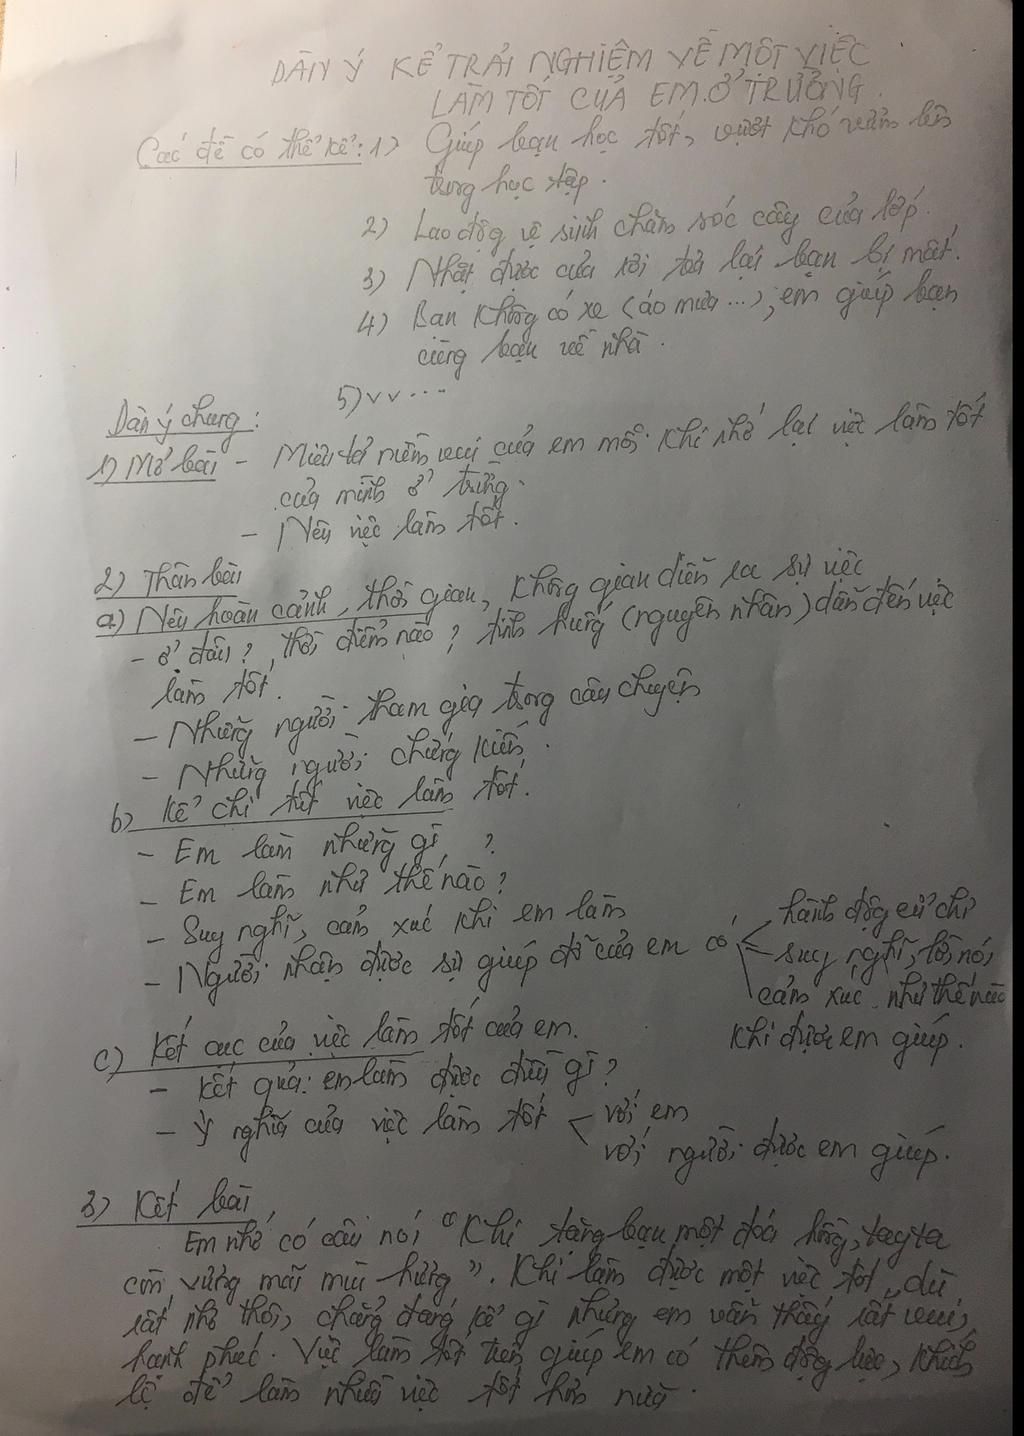 DÀN Ý KỂ TRẢI NGHIỆM VỀ MỘT VIỆC
LÀM TỐT CỦA EM Ở TRƯỜNG.
Các đề có thể kể: 1) Giúp bạn học tốt, vượt khó vươn lên
trong học tập.
2) Lao động vệ sinh chăm sóc cây của lớp.
3) Nhặt được của rơi trả lại bạn bị mất.
4) Bạn không có xe (áo mưa...), em giúp bạn
cùng bạn về nhà.
5) v v ...
Dàn ý chung:
1) Mở bài - Miêu tả niềm vui của em mỗi khi nhớ lại việc làm tốt
của mình ở trường.
- Nêu việc làm tốt.
2) Thân bài
a) Nêu hoàn cảnh, thời gian, không gian diễn ra sự việc
- ở đâu?, thời điểm nào?, tình huống (nguyên nhân) dẫn đến việc
làm tốt.
- Những người tham gia trong câu chuyện
- Những người chứng kiến.
b) Kể chi tiết việc làm tốt.
- Em làm những gì?
- Em làm như thế nào?
- Suy nghĩ, cảm xúc khi em làm
- Người nhận được sự giúp đỡ của em có
hành động cử chỉ
suy nghĩ, lời nói,
cảm xúc như thế nào
khi được em giúp.
c) Kết cục của việc làm tốt của em.
- Kết quả: em làm được điều gì?
- Ý nghĩa của việc làm tốt
với em
với người được em giúp.
3) Kết bài
Em nhớ có câu nói "Khi tặng bạn một đoá hồng, tay ta
còn vương mãi mùi hương". Khi làm được một việc tốt, dù
rất nhỏ thôi, chẳng đáng kể gì nhưng em vẫn thấy rất vui,
hạnh phúc. Việc làm tốt trên giúp em có thêm động lực, khích
lệ để làm nhiều việc tốt hơn nữa.